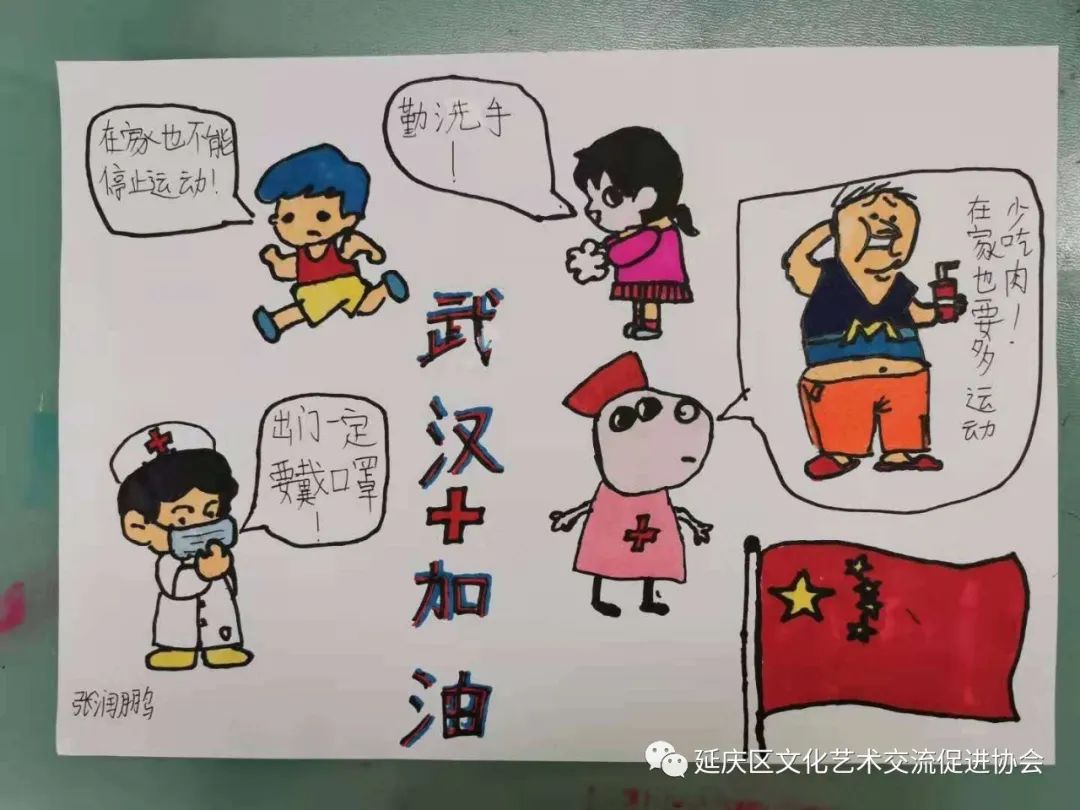 在家也不能
停止运动!
勤洗手
!
少吃肉!
在家也要多运动
武
汉
加
油
出门一定
要戴口罩
!
张润鹏
延庆区文化艺术交流促进协会